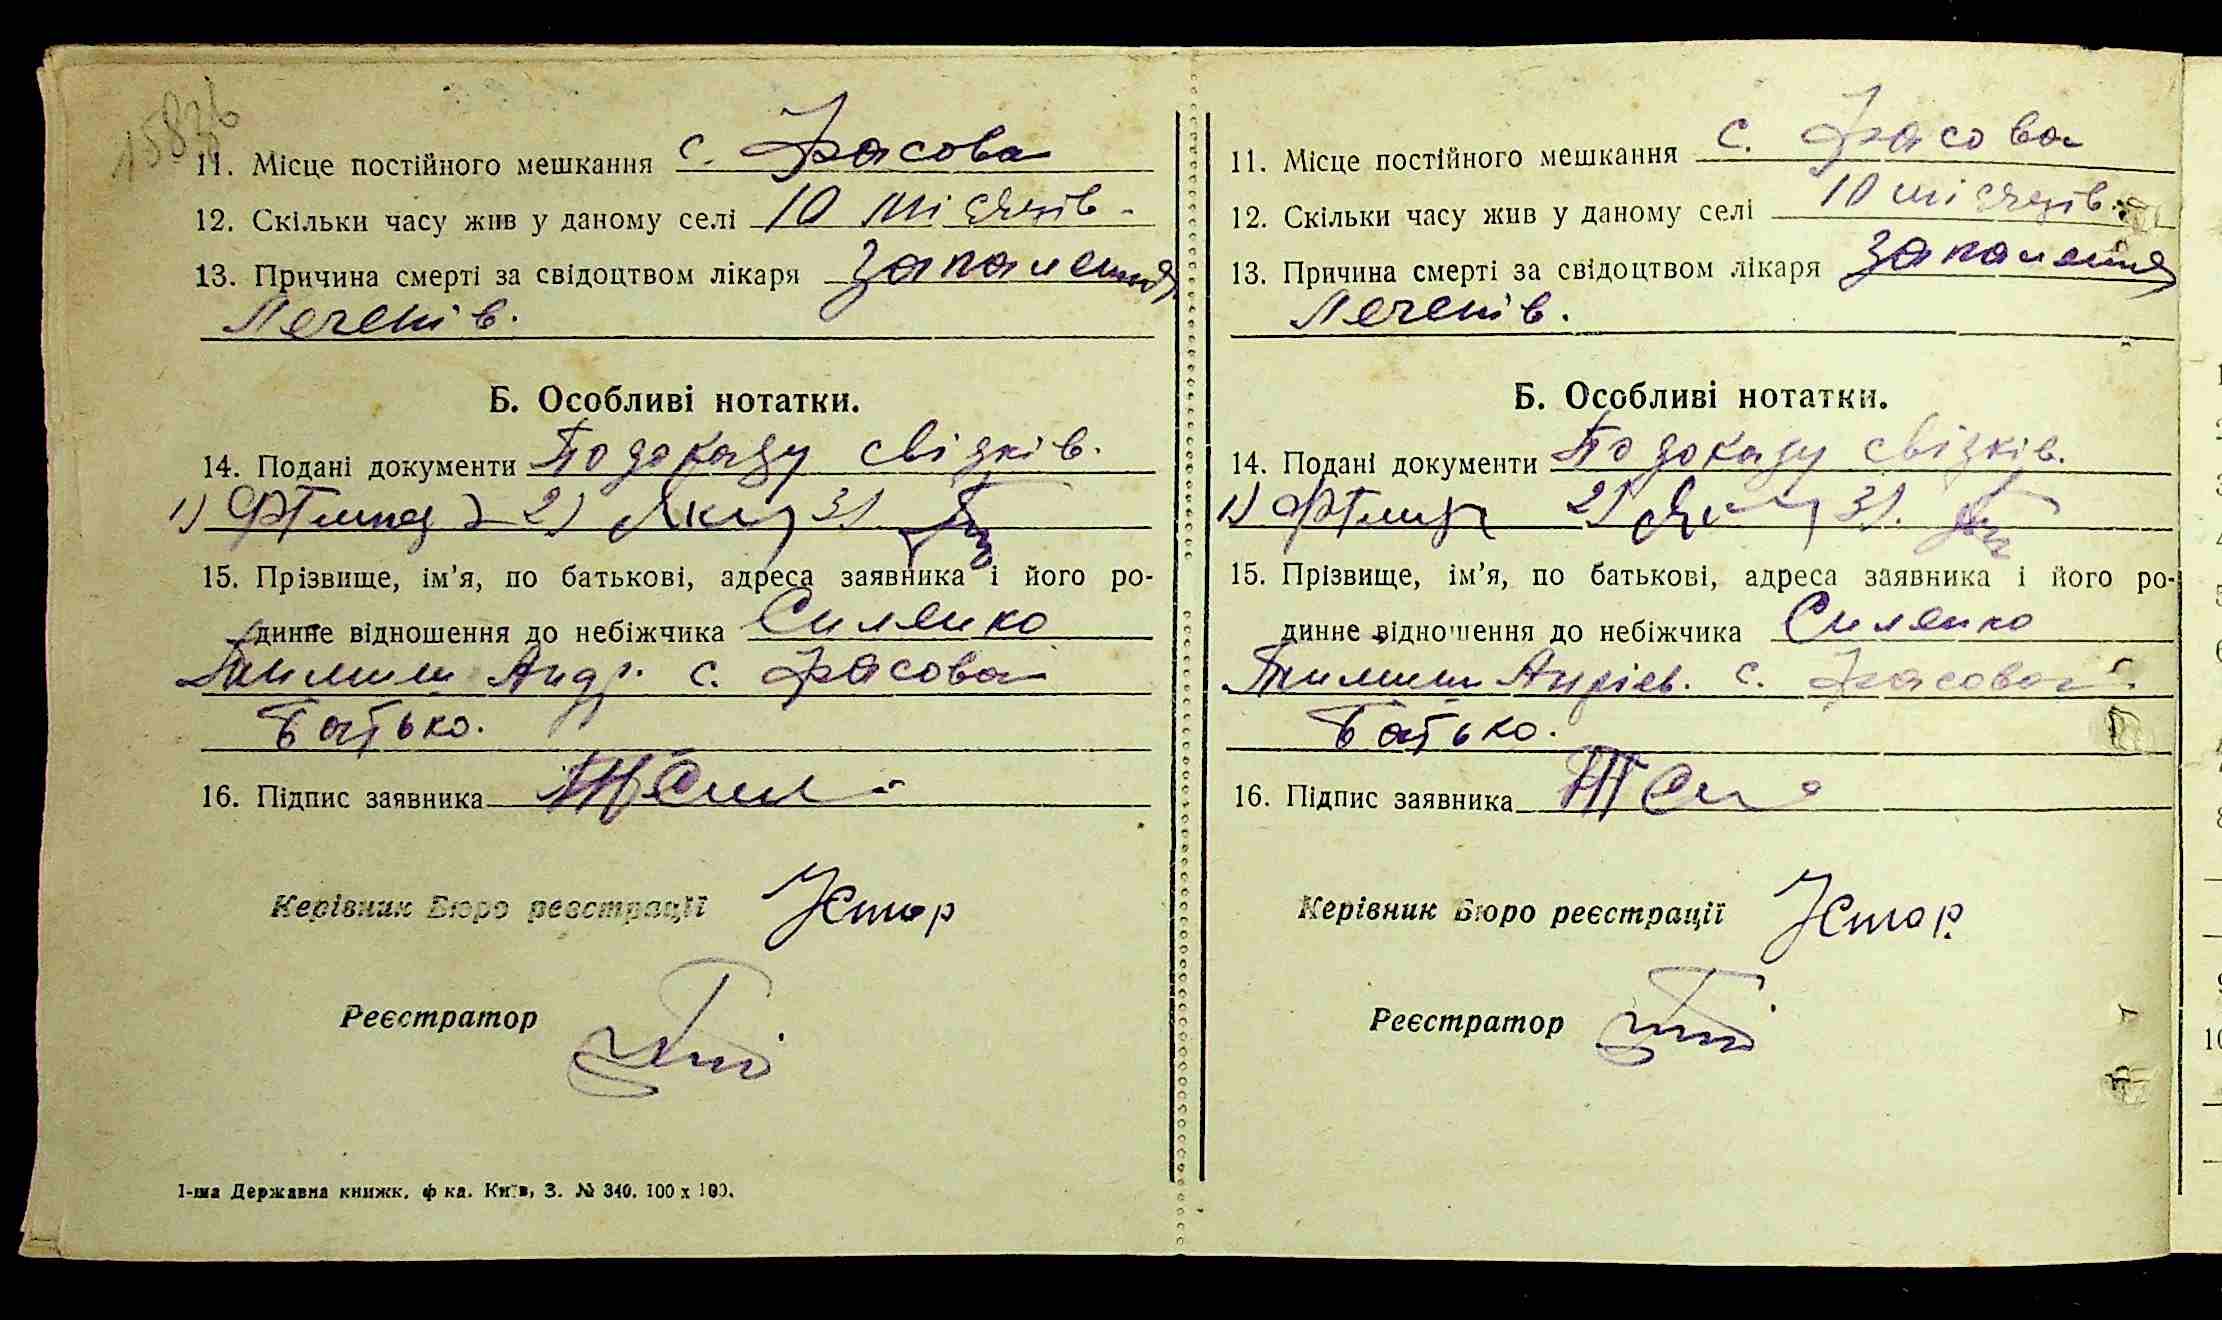 11. Місце постійного мешкання с. Красова
12. Скільки часу жив у даному селі 10 місяців.
13. Причина смерті за свідоцтвом лікаря запалення
печенів.
Б. Особливі нотатки.
14. Подані документи По доказу свідків.
1) 2) 3)
15. Прізвище, ім’я, по батькові, адреса заявника і його ро-
динне відношення до небіжчика Силенко
Тимиш Андр. с. Красова
Батько.
16. Підпис заявника
Керівник Бюро реєстрації
Реєстратор
1-ша Державна книжк. ф-ка. Київ, З. № 340. 100 х 100.
11. Місце постійного мешкання с. Красова
12. Скільки часу жив у даному селі 10 місяців.
13. Причина смерті за свідоцтвом лікаря запалення
печенів.
Б. Особливі нотатки.
14. Подані документи По доказу свідків.
1) 2) 3).
15. Прізвище, ім’я, по батькові, адреса заявника і його ро-
динне відношення до небіжчика Силенко
Тимиш Андріев. с. Красова
Батько.
16. Підпис заявника
Керівник Бюро реєстрації
Реєстратор